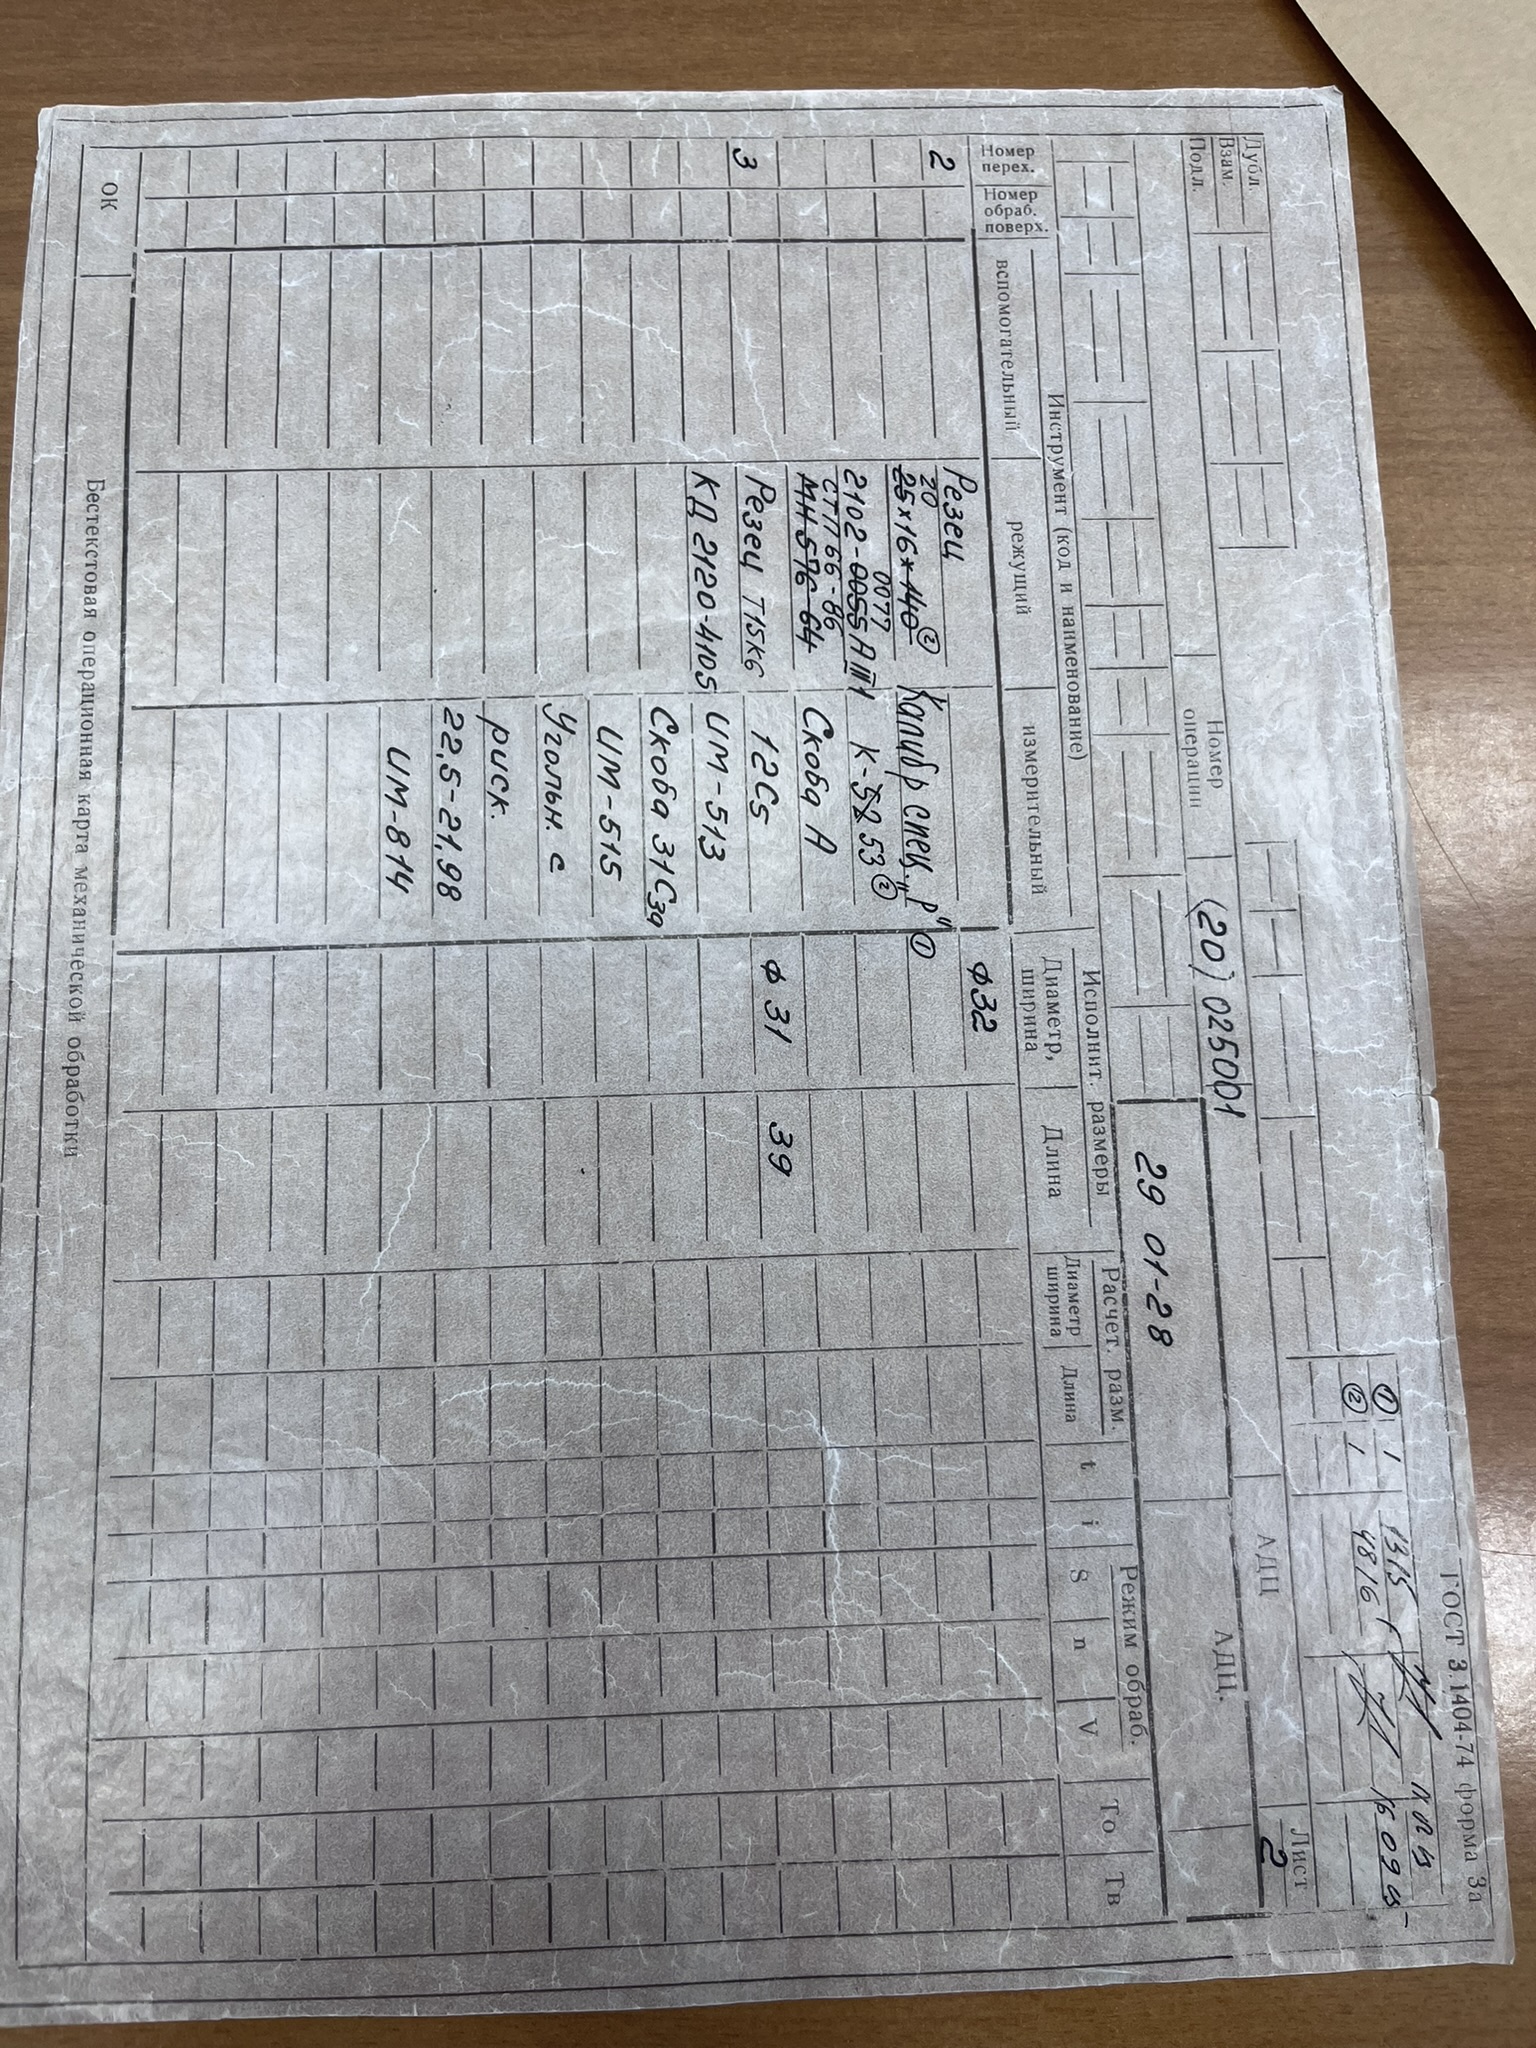 ГОСТ 3.1404-74 форма 3а
① 1 1315
② 1 4816 16 09
Дубл.
Взам.
Подл.
Номер операции
(20) 025001
АДЦ
Лист
2
29 01-28
АДЦ.
Номер перех.
Номер обраб. поверх.
Инструмент (код и наименование)
вспомогательный
режущий
измерительный
Исполнит. размеры
Диаметр, ширина
Длина
Расчет. разм.
Диаметр ширина
Длина
t
i
Режим обраб.
S
n
V
То
Тв
2 Резец ф32
20
25×16×140 ② Калибр спец. „Р" ①
0077
2102-0055 А III 1 К-52 53 ②
СТП 66-86
МН 576-64 Скоба А
3 Резец Т15К6 12С5 ф 31 39
КД 2120-4105 ИМ-513
Скоба 31С3а
ИМ-515
Угольн. с
риск.
22,5-21,98
ИМ-814
ОК
Бестекстовая операционная карта механической обработки